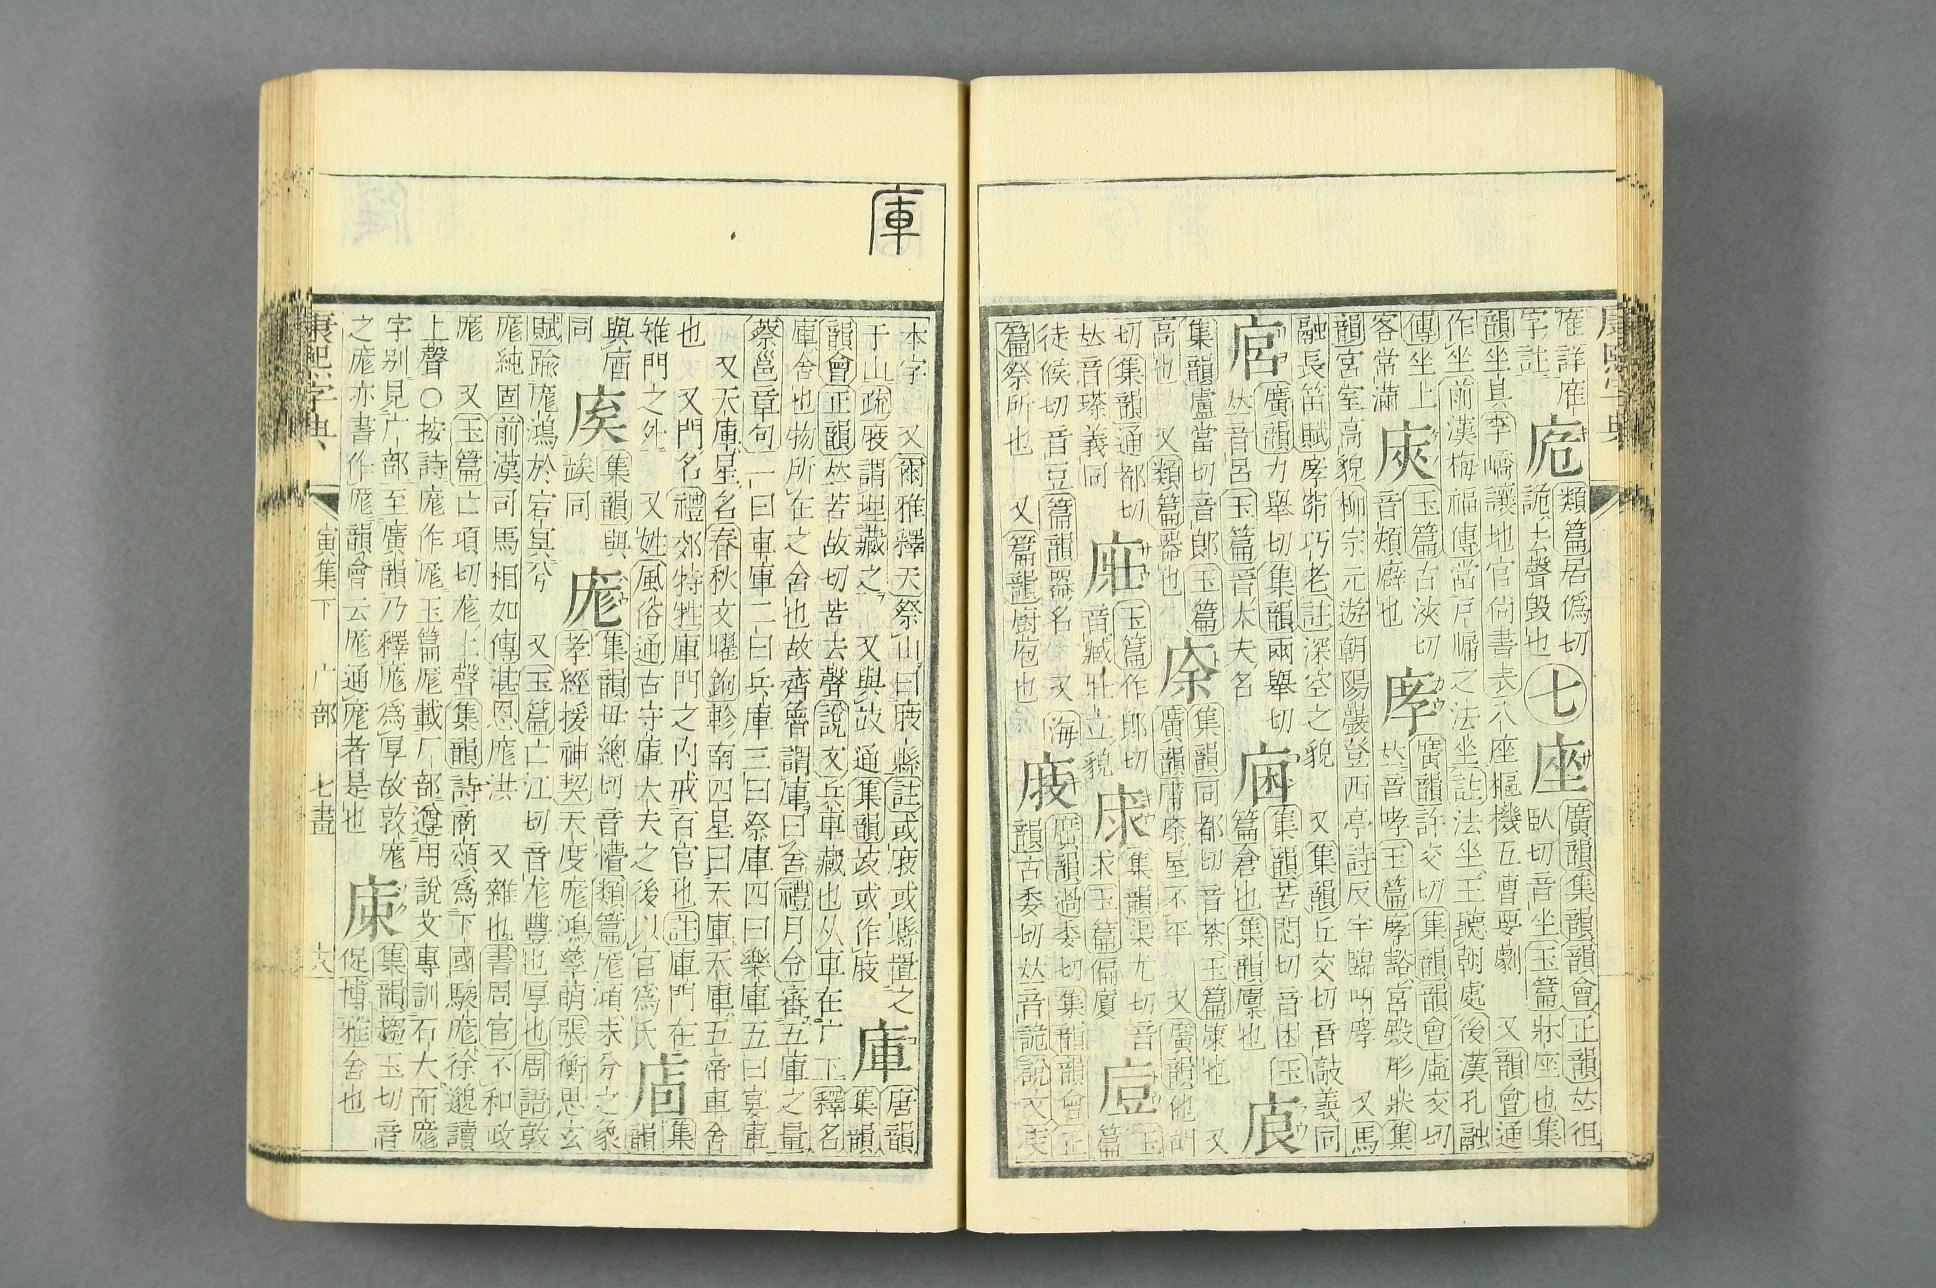 康熙字典
庢詳庢字註
類篇居僞切詭去聲毀也
七
座 廣韻集韻韻會正韻𠀤徂臥切音坐玉篇牀座也集韻坐具李嶠讓地官尚書表八座樞機五曹要劇 又韻會通作坐前漢梅福傳當戸牖之法坐註法坐正聽朝處後漢孔融傳坐上客常滿
玉篇古浹切音頰廦也
庨 廣韻許交切集韻韻會虛交切𠀤音哮玉篇庨豁宮殿形狀集韻宮室高貌柳宗元遊朝陽巖登西亭詩反宇臨呀庨 又馬融長笛賦庨窌巧老註深空之貌 又集韻丘交切音敲義同
廣韻力舉切集韻兩舉切𠀤音呂玉篇晉大夫名
集韻苦悶切音困玉篇倉也集韻廩也
集韻盧當切音郎玉篇高也 又類篇器也
庩 集韻同都切音荼玉篇庩也 又廣韻庯庩屋不平 又廣韻他胡切集韻通都切𠀤音瑹義同
玉篇作郎切音臧壯立貌
集韻渠尤切音求玉篇偏廈
玉篇徒候切音豆篇韻器名 又海篇祭所也 又篇韻廚庖也
庪 廣韻過委切集韻韻會正韻古委切𠀤音詭說文
庫
本字 又爾雅釋天祭山曰庪縣註或庪或縣置之于山疏庪謂埋藏之 又與攱通集韻攱或作庪
庫 唐韻集韻韻會正韻𠀤苦故切苦去聲說文兵車藏也从車在广下釋名庫舍也物所在之舍也故齊魯謂庫曰舍禮月令審五庫之量蔡邕章句一曰車庫二曰兵庫三曰祭庫四曰樂庫五曰宴庫 又天庫星名春秋文曜鉤軫南四星曰天庫天庫五帝車舍也 又門名禮郊特牲庫門之內戒百官也註庫門在雉門之外 又姓風俗通古守庫大夫之後以官爲氏
集韻與同
集韻與竢同
庬 集韻母總切音懵類篇庬澒未分之象孝經援神契天度庬鴻孳萌張衡思玄賦踰庬鴻於宕冥兮 又玉篇亡江切音尨豐也厚也周語敦庬純固前漢司馬相如傳湛恩庬洪 又雜也書周官不和政庬 又玉篇亡項切尨上聲集韻詩商頌爲下國駿庬徐邈讀上聲○按詩庬作厖玉篇庬載厂部遵用說文專訓石大而庬字別見广部至廣韻乃釋庬爲厚故敦庬之庬亦書作庬韻會云庬通厖者是也
集韻趨玉切音促博雅舍也
康熙字典
寅集下
广部
七畫